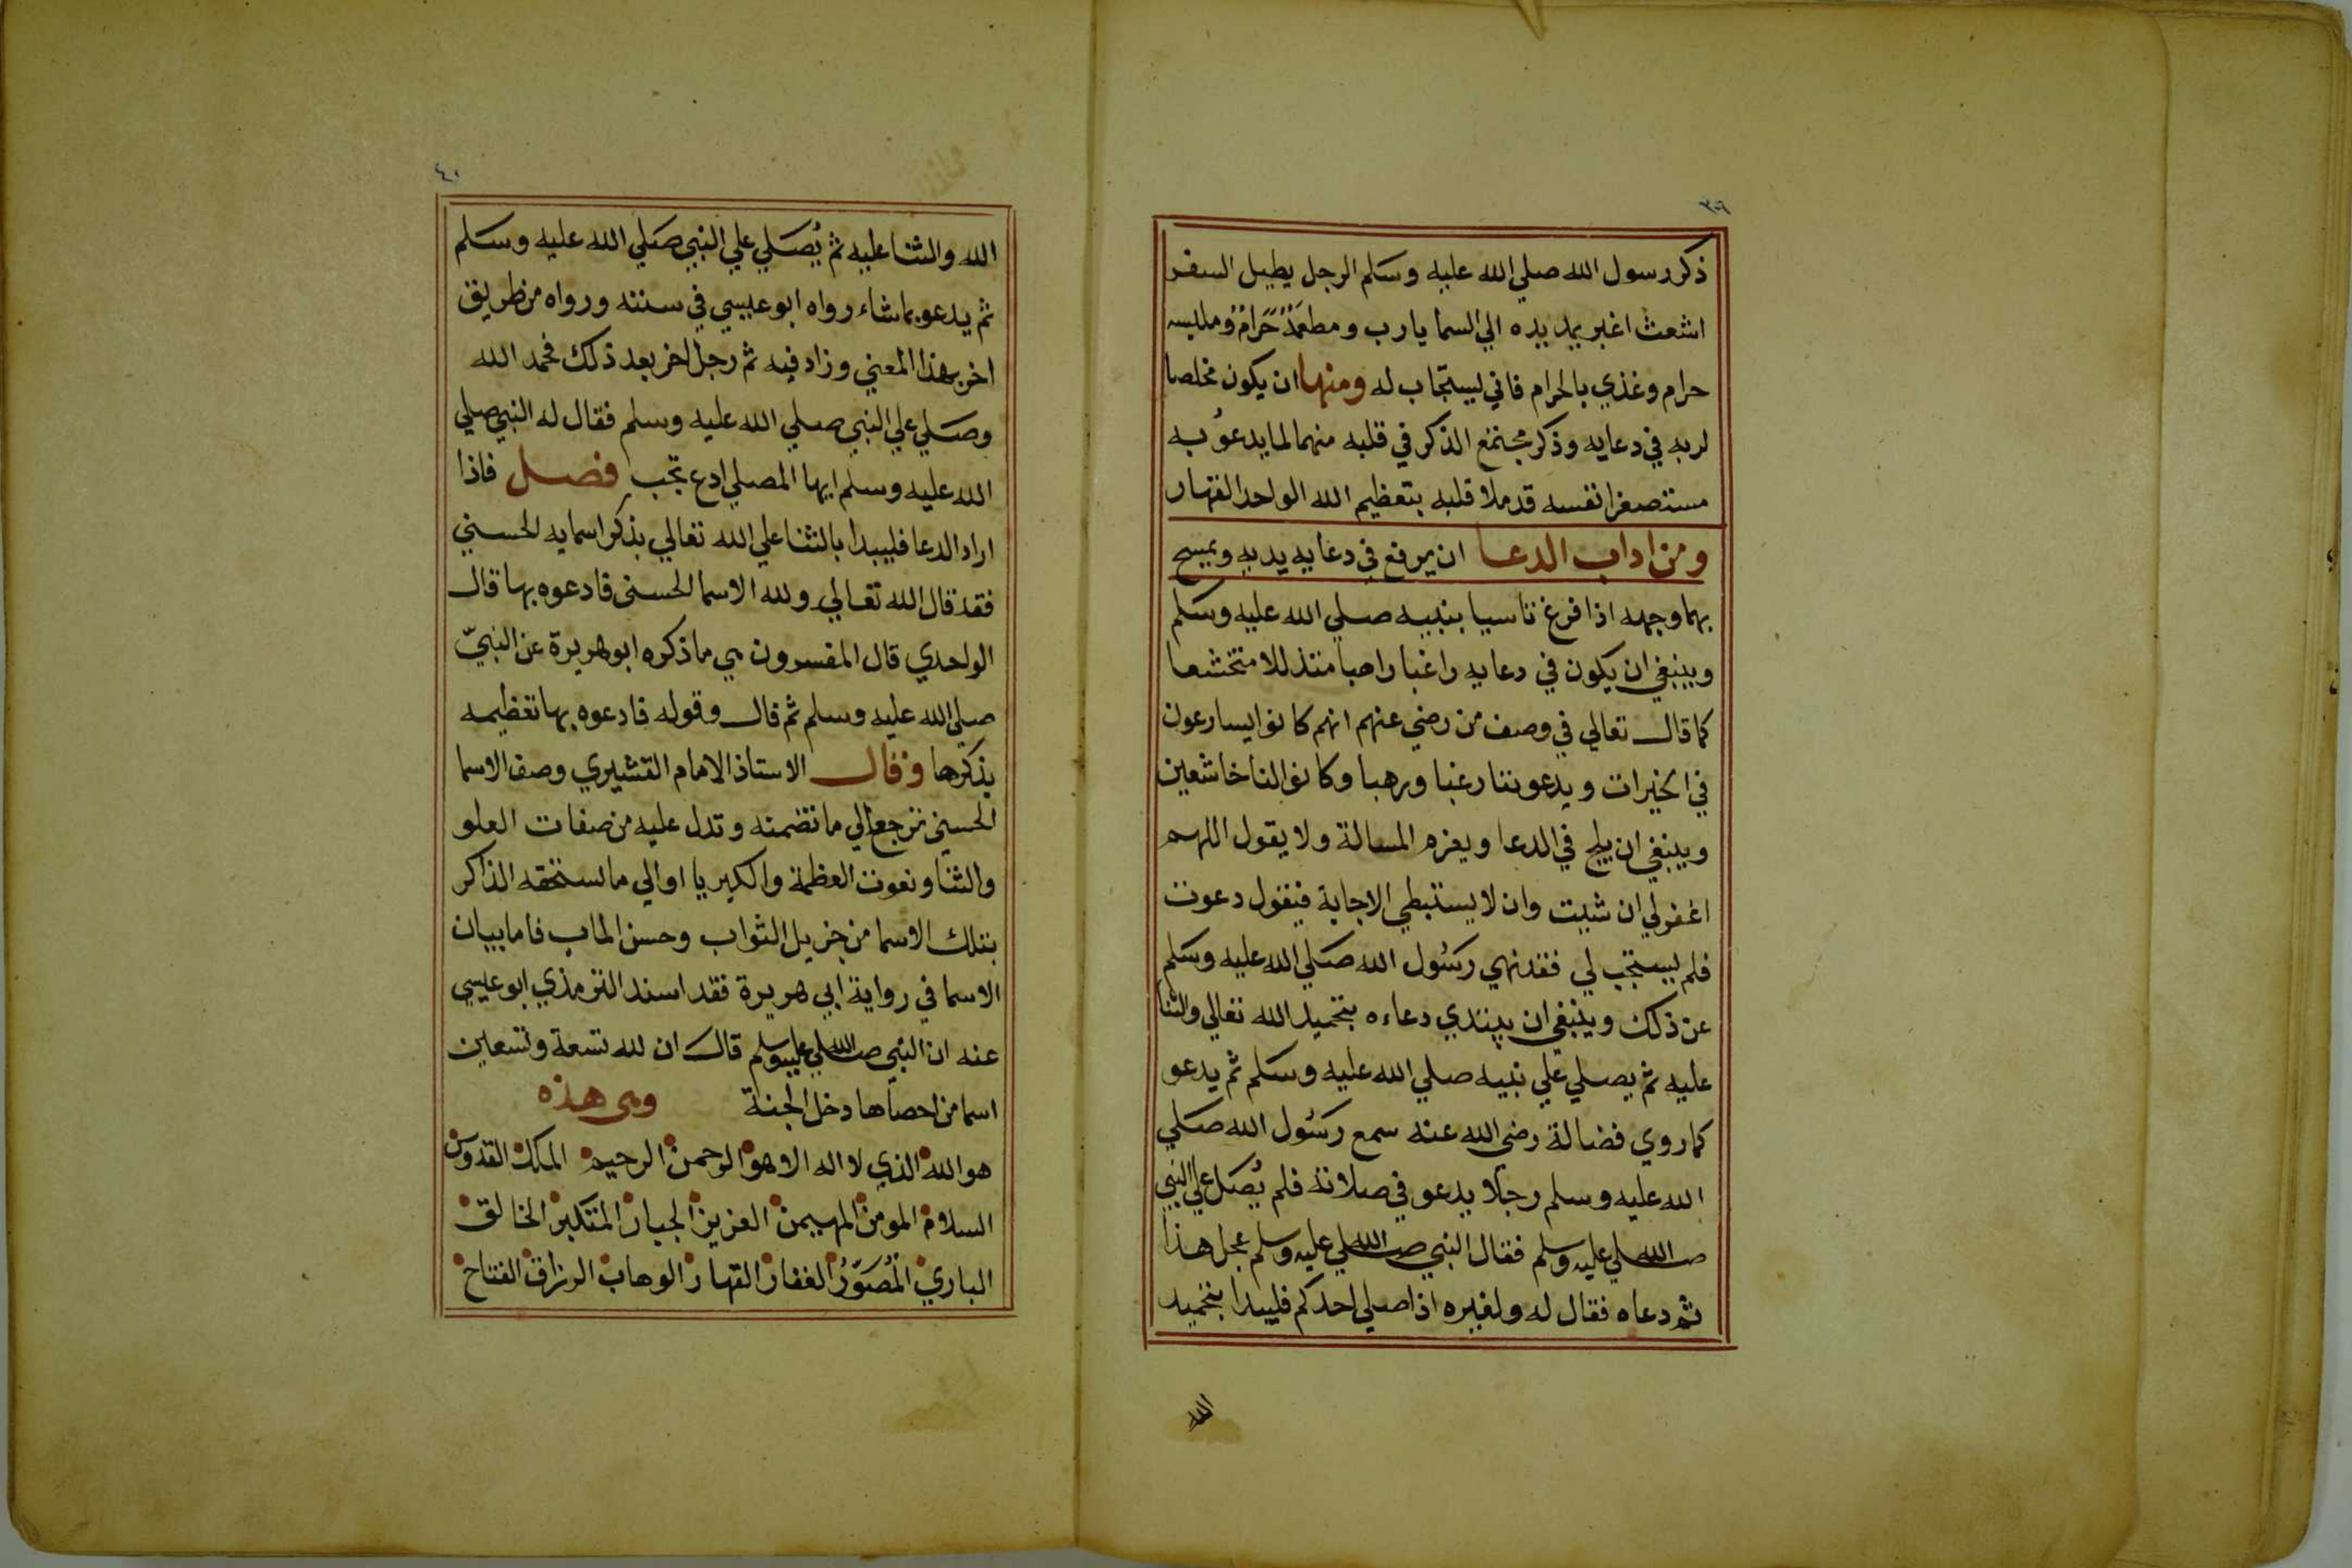 ٣٩
ذكر رسول الله صلي الله عليه وسلم الرجل يطيل السفر
اشعث اغبر يمد يده الي السما يارب ومطعمه حرام وملبسه
حرام وغذي بالحرام فاني يستجاب له ومنها ان يكون مخلصا
لربه في دعايه وذكر مجتمع الذكر في قلبه منهما لما يدعو به
مستصغرا نفسه قد ملا قلبه بتعظيم الله الواحد القهار
ومن اداب الدعا ان يرفع في دعايه يديه ويمسح
بهما وجهه اذا فرغ تاسيا بنبيه صلي الله عليه وسلم
وينبغي ان يكون في دعايه راغبا راهبا متذللا متخشعا
كما قال تعالي في وصف من رضي عنهم انهم كانوا يسارعون
في الخيرات ويدعوننا رغبا ورهبا وكانوا لنا خاشعين
وينبغي ان يلح في الدعا ويعزم المسالة ولا يقول اللهم
اغفر لي ان شيت وان لا يستبطي الاجابة فيقول دعوت
فلم يستجب لي فقد نهي رسول الله صلي الله عليه وسلم
عن ذلك وينبغي ان يبتدي دعاءه بتحميد الله تعالي والثنا
عليه ثم يصلي علي نبيه صلي الله عليه وسلم ثم يدعو
كما روي فضالة رضي الله عنه سمع رسول الله صلي
الله عليه وسلم رجلا يدعو في صلاته فلم يُصَل علي النبي
صلي الله عليه وسلم فقال النبي صلي الله عليه وسلم عجل هذا
ثم دعاه فقال له ولغيره اذا صلي احدكم فليبدا بتحميد
الله
٤٠
الله والثنا عليه ثم يُصَلي علي النبي صلي الله عليه وسلم
ثم يدعو بما شاء رواه ابو عيسي في سننه ورواه من طريق
اخر بهذا المعني وزاد فيه ثم رجل اخر بعد ذلك فحمد الله
وصلي علي النبي صلي الله عليه وسلم فقال له النبي صلي
الله عليه وسلم ايها المصلي ادع تجب فصل فاذا
اراد الدعا فليبدا بالثنا علي الله تعالي بذكر اسمايه الحسني
فقد قال الله تعالي ولله الاسما الحسنى فادعوه بها قال
الواحدي قال المفسرون هي ما ذكره ابو هريرة عن النبيّ
صلي الله عليه وسلم ثم قال وقوله فادعوه بها تعظيمه
بذكرها وقال الاستاذ الامام القشيري وصف الاسما
الحسني ترجع الي ما تضمنه وتدل عليه من صفات العلو
والثنا ونعوت العظمة والكبريا او الي ما يستحقه الذاكر
بتلك الاسما من جزيل الثواب وحسن الماب فاما بيان
الاسما في رواية ابي هريرة فقد اسند الترمذي ابو عيسي
عنه ان النبي صلي الله عليه وسلم قال ان لله تسعة وتسعين
اسما من احصاها دخل الجنة وهي هذه
هو الله الذي لا اله الا هو الرحمن الرحيم الملك القدوس
السلام المومن المهيمن العزيز الجبار المتكبر الخالق
الباري المُصَوّرُ الغفار القهار الوهاب الرزاق الفتاح